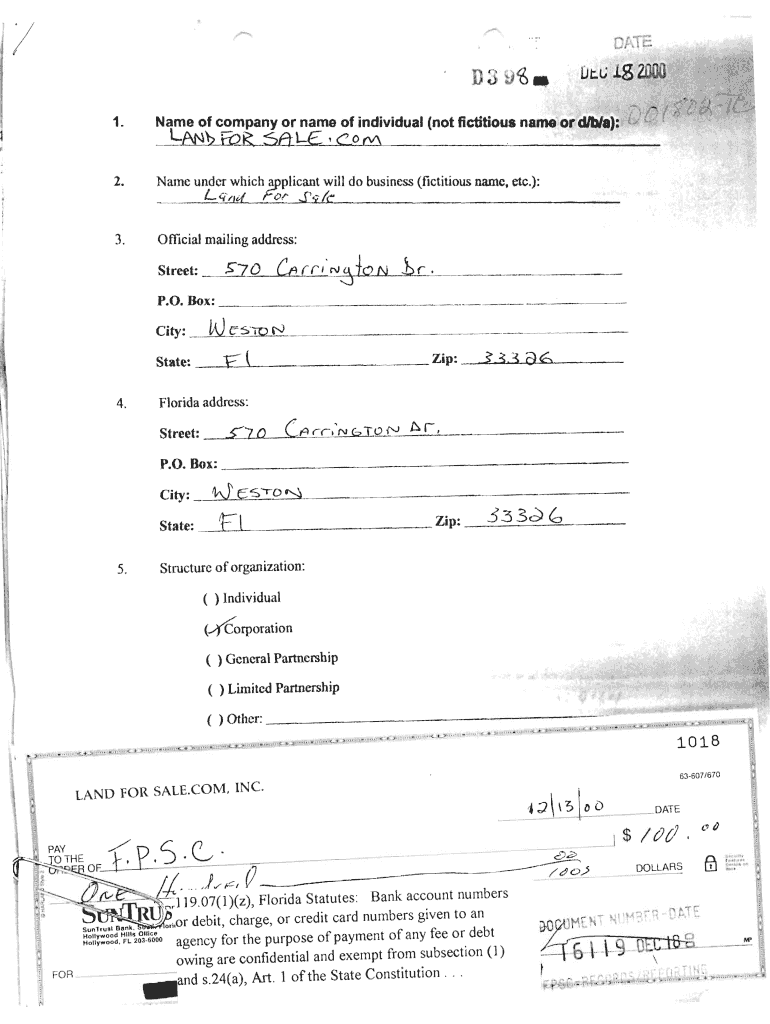 DATE
D398 DEC 18 2000
001802-TC
1. Name of company or name of individual (not fictitious name or d/b/a):
LAND FOR SALE.COM
2. Name under which applicant will do business (fictitious name, etc.):
Land For Sale
3. Official mailing address:
Street: 570 CArrington Dr.
P.O. Box:
City: WESTON
State: Fl Zip: 33326
4. Florida address:
Street: 570 CArriNGTON Dr.
P.O. Box:
City: WESTON
State: Fl Zip: 33326
5. Structure of organization:
( ) Individual
(✓) Corporation
( ) General Partnership
( ) Limited Partnership
( ) Other:
1018
63-607/670
LAND FOR SALE.COM, INC.
12/13/00 DATE
PAY
TO THE
ORDER OF F.P.S.C. $ 100.00
One Hundred 00/100s DOLLARS
SUNTRUST
SunTrust Bank, South Florida
Hollywood Hills Office
Hollywood, FL 203-6000
119.07(1)(z), Florida Statutes: Bank account numbers
or debit, charge, or credit card numbers given to an
agency for the purpose of payment of any fee or debt
owing are confidential and exempt from subsection (1)
and s.24(a), Art. 1 of the State Constitution . . .
FOR
DOCUMENT NUMBER-DATE
16119 DEC 18
FPSC-RECORDS/REPORTING
MP